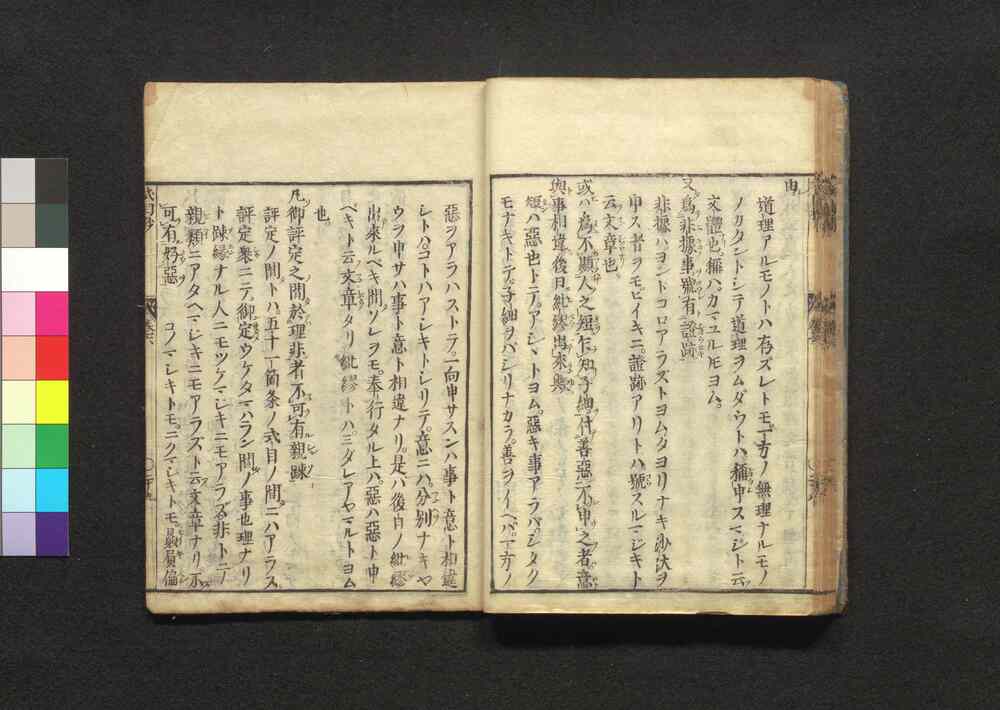 由
道理アルモノトハ存ズレトモ一方ノ無理ナルモノ
ノリタントシテ道理ヲムダウトハ稱申スマシト云
文體也稱ハカマユルモヨム。
又為非據事號有證跡
非據ハヨントコロアラズトヨムタヨリナキ沙汰ヲ
申ス者ヲモビイキニ證跡アリトハ號スルマジキト
云文章也。
或ハ為不顯人之短乍知子細付善惡不申之者意
與事相違後日紕繆出來歟
短ハ惡也トテアシヽトヨム。惡キ事アラバシタク
モナキトテ子細ヲバシリナカラ。善ヲイヘバ一方ノ
惡ヲアラハストテ。一向申サスンハ事ト意ト相違
シトハコトハアシキトシリテ。意ニハ分別ナキヤ
ウヲ申サハ事ト意ト相違ナリ。是ハ後日ノ紕繆
出来ルベキ間ソレヲモ。奉行タル上ハ惡ハ惡ト申
ベキト云文章タリ紕繆トハ。ミタレアヤマルトヨム
也。
凡御評定之間於理非者不可有親踈
評定ノ間トハ五十一箇条ノ式目ノ間ニハアラス
評定衆ニテ。御定ウケタマハラン間ノ事也理ナリ
ト踈縁ナル人ニモツケマジキニモアラズ非トテ
親類ニアタヘマシキニモアラズト云文章ナリ
可有好惡 コノマシキトモ。ニクマシキトモ。贔屓偏